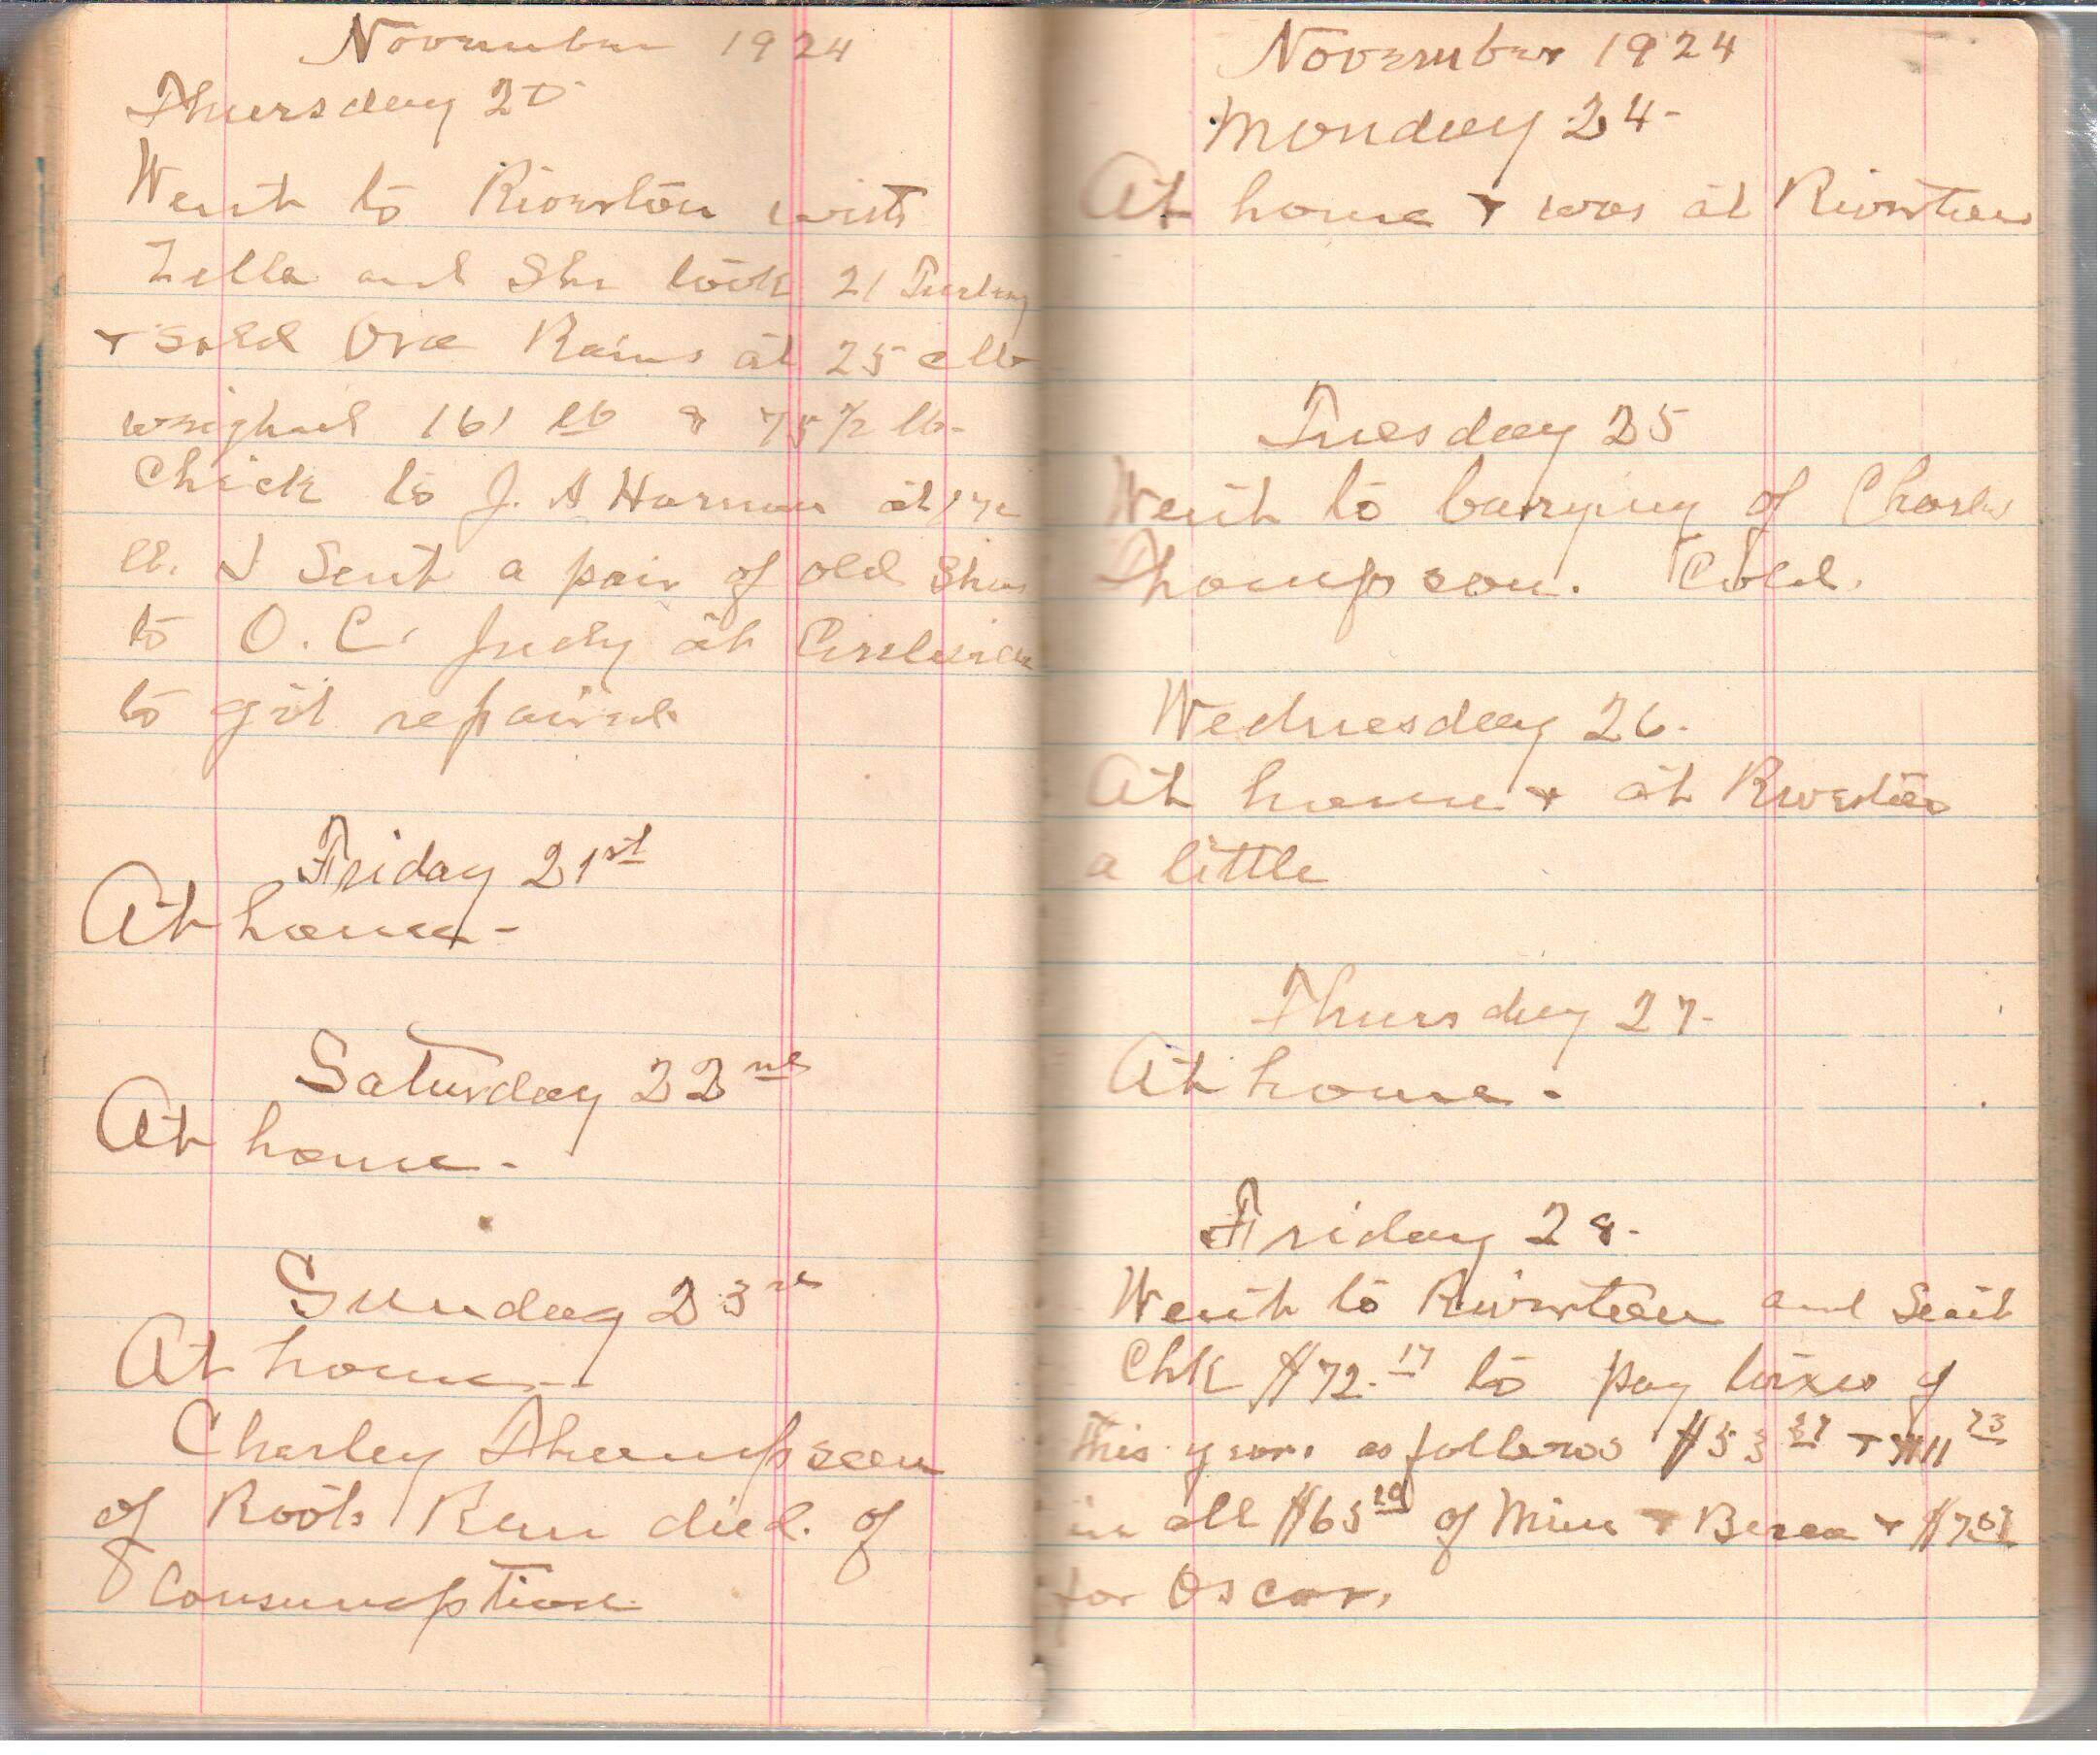 November 1924
Thursday 20
Went to Riverton with
Zella and She took 21 Turkey
+ sold Ora Rains at 25 c lb
weighed 161 lb & 75 1/2 lb.
Chick to J. A Harman at 17c
lb. I Sent a pair of old Shoes
to O. C. Judy at Circleville
to git repaired
Friday 21st
At home-
Saturday 22nd
At home.-
Sunday 23rd
At home--
Charley Thompson
of Roots Run died. of
Consumption
November 1924
Monday 24-
At home + was at Riverton
Tuesday 25
Went to burying of Charles
Thompson. Cold.
Wednesday 26.
At home + at Riverton
a little
Thursday 27-
At home.-
Friday 28-
Went to Riverton and Sent
Chk $72.17 to pay taxes of
this year. as follows $53 + $11 23
in all $65 10 of Mine + + $7
for Oscar.